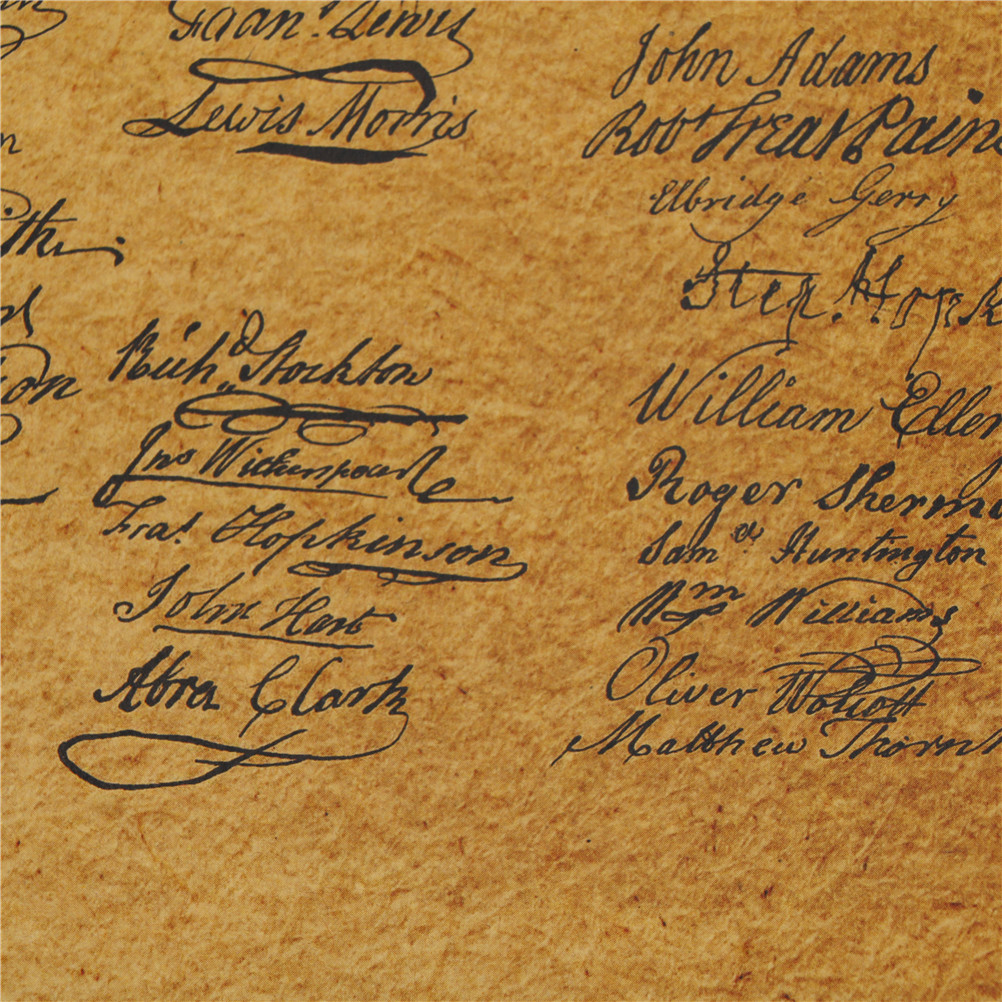 Fran. Lewis
Lewis Morris
Richd. Stockton
Jno Witherspoon
Fras. Hopkinson
John Hart
Abra Clark
John Adams
Robt Treat Paine
Elbridge Gerry
Step. Hopk
William Eller
Roger Sherm
Samel Huntington
Wm Williams
Oliver Wolcott
Matthew Thornt